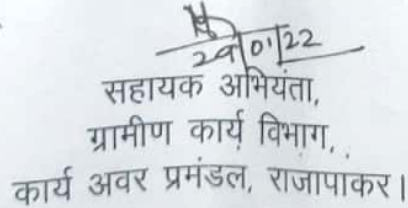 29/01/22
सहायक अभियंता,
ग्रामीण कार्य विभाग,
कार्य अवर प्रमंडल, राजापाकर।